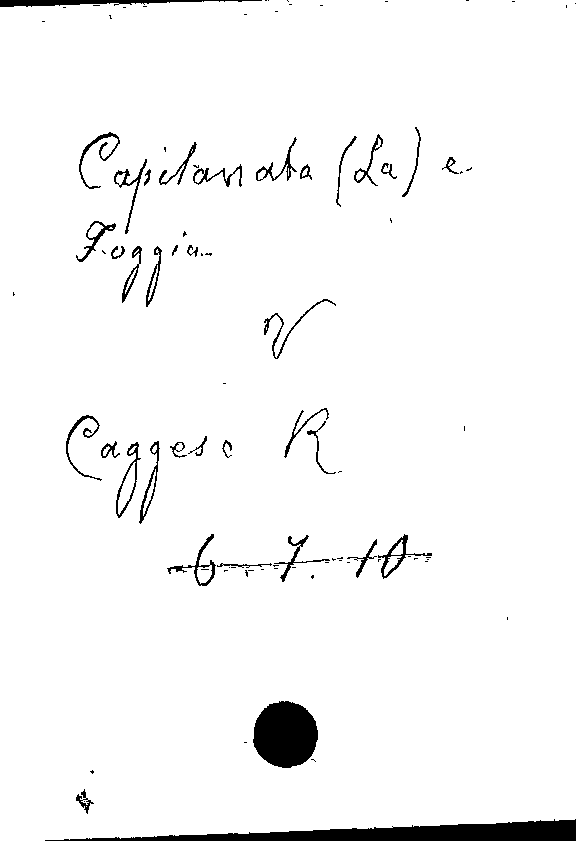 Capitanata (La) e
Foggia
V
Caggese R
6. 7. 10